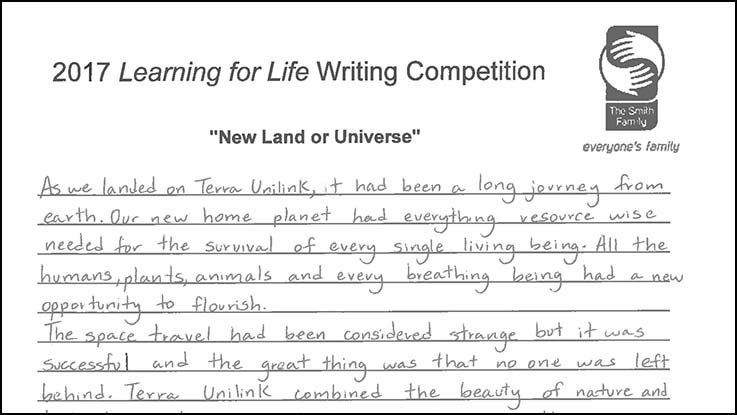 2017 Learning for Life Writing Competition
The Smith
Family
everyone's family
"New Land or Universe"
As we landed on Terra Unilink, it had been a long journey from
earth. Our new home planet had everything resource wise
needed for the survival of every single living being. All the
humans, plants, animals and every breathing being had a new
opportunity to flourish.
The space travel had been considered strange but it was
successful and the great thing was that no one was left
behind. Terra Unilink combined the beauty of nature and